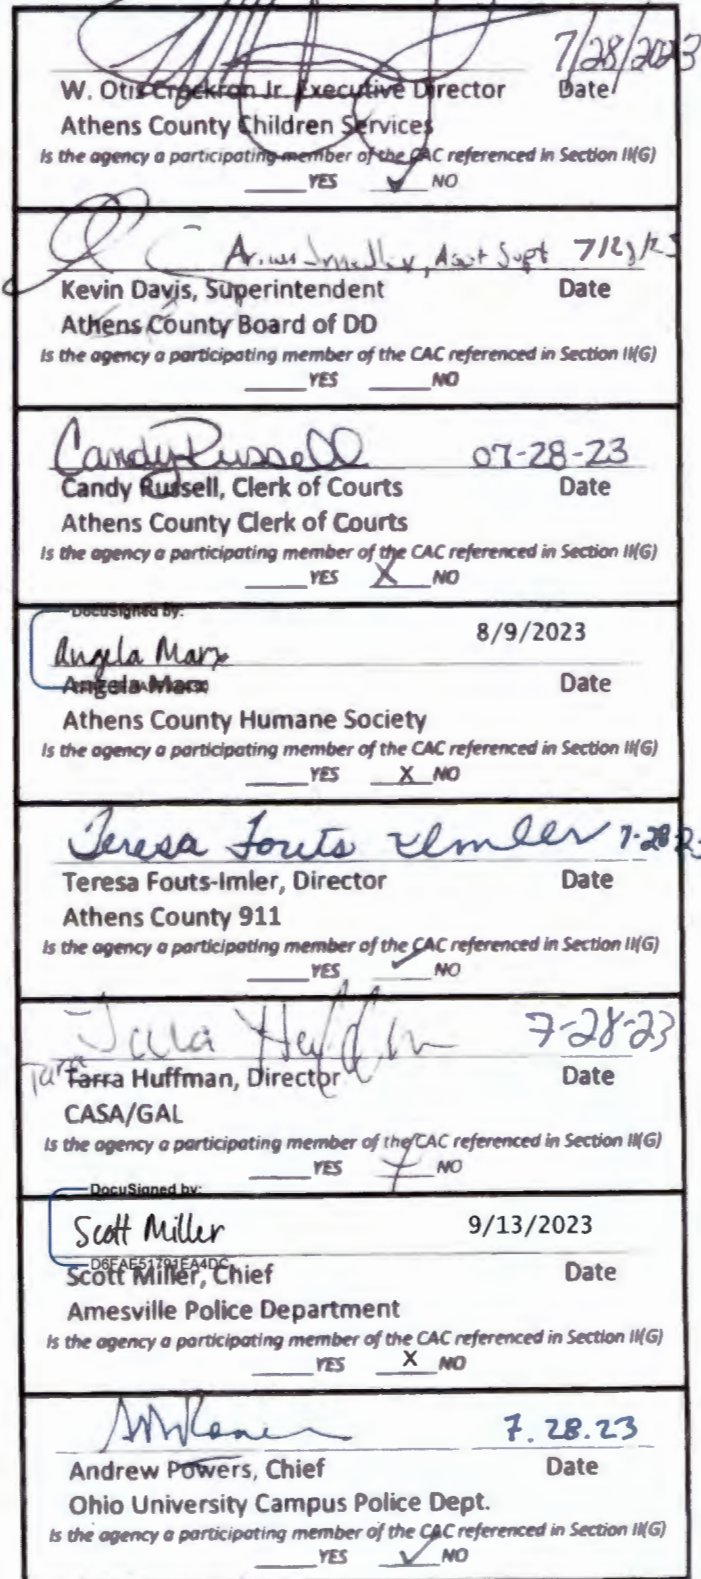 7/28/2023
W. Otis Crockron Jr. Executive Director Date
Athens County Children Services
Is the agency a participating member of the CAC referenced in Section II(G)
____YES ✓ NO
, Asst Supt 7/28/23
Kevin Davis, Superintendent Date
Athens County Board of DD
Is the agency a participating member of the CAC referenced in Section II(G)
____YES ____NO
Candy Russell 07-28-23
Candy Russell, Clerk of Courts Date
Athens County Clerk of Courts
Is the agency a participating member of the CAC referenced in Section II(G)
____YES X NO
DocuSigned by:
Angela Marx 8/9/2023
Angela Marx Date
Athens County Humane Society
Is the agency a participating member of the CAC referenced in Section II(G)
____YES X NO
Teresa Fouts Imler 7-28-23
Teresa Fouts-Imler, Director Date
Athens County 911
Is the agency a participating member of the CAC referenced in Section II(G)
____YES ✓ NO
Tara Huffman 7-28-23
Tara Tarra Huffman, Director Date
CASA/GAL
Is the agency a participating member of the CAC referenced in Section II(G)
____YES ____NO
DocuSigned by:
Scott Miller 9/13/2023
D6FAE51791EA4DC...
Scott Miller, Chief Date
Amesville Police Department
Is the agency a participating member of the CAC referenced in Section II(G)
____YES X NO
7.28.23
Andrew Powers, Chief Date
Ohio University Campus Police Dept.
Is the agency a participating member of the CAC referenced in Section II(G)
____YES ✓ NO